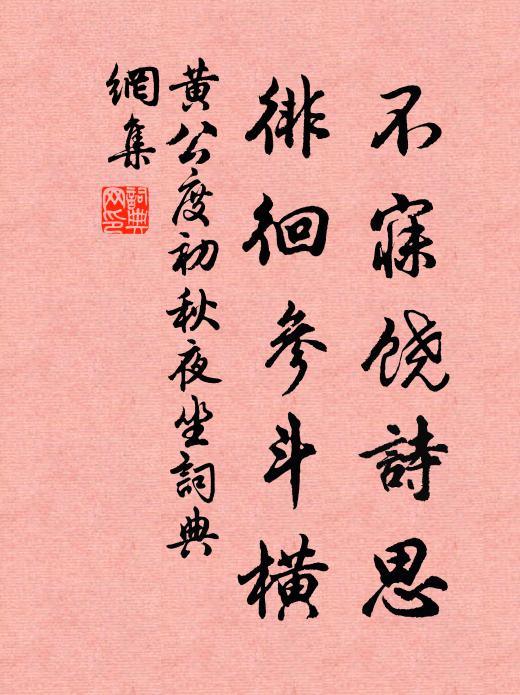 不寐饶詩思
徘徊參斗横
黄公度初秋夜坐詞典
網集
詞典
网印